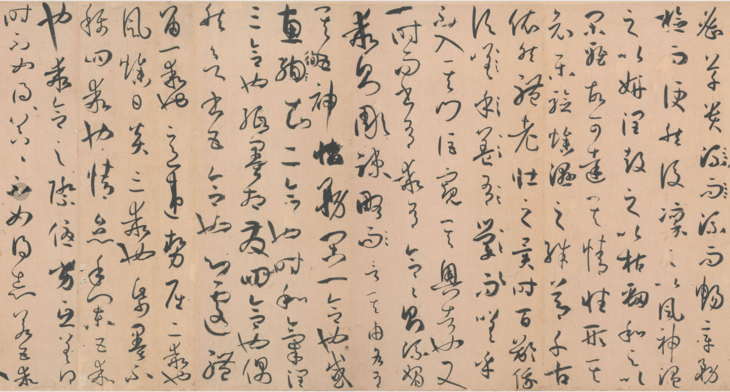 密草貴流而流而暢章務
檢而便然後凜之以風神溫
之以妍潤鼓之以枯勁和之以
閑雅故可達其情性形其
哀樂驗燥濕之殊節千古
依然體老壯之異時百齡俄
頃嗟乎
不入其門詎窺其奧者也又
一時而書有乖有合合則流媚
乖則彫疎略而言其由各有
其五神怡務閑一合也感
惠徇知二合也時和氣潤
三合也紙墨相發四合也偶
然欲書五合也心遽體
留一乖也意違勢屈二乖也
風燥日炎三乖也紙墨不
稱四乖也情怠手闌五乖
也乖合之際優劣互差得
時不如得器得器不如得志若五乖